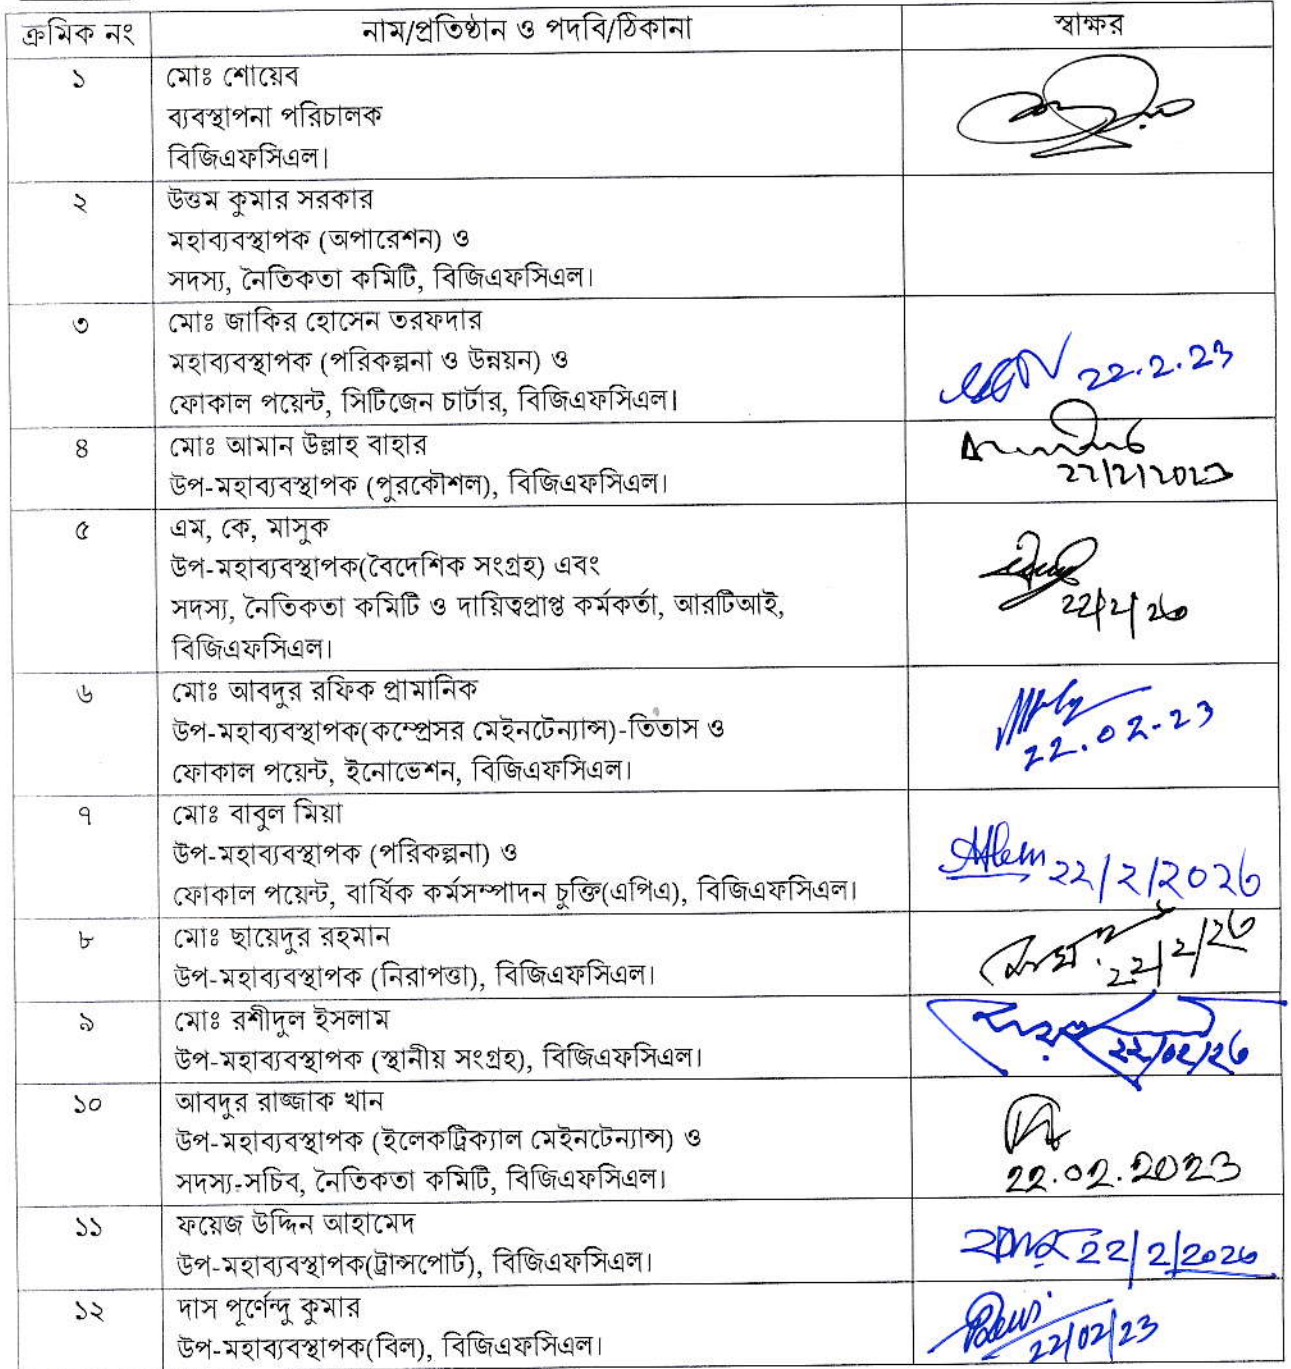 ক্রমিক নং নাম/প্রতিষ্ঠান ও পদবি/ঠিকানা স্বাক্ষর
১ মোঃ শোয়েব
ব্যবস্থাপনা পরিচালক
বিজিএফসিএল।
২ উত্তম কুমার সরকার
মহাব্যবস্থাপক (অপারেশন) ও
সদস্য, নৈতিকতা কমিটি, বিজিএফসিএল।
৩ মোঃ জাকির হোসেন তরফদার
মহাব্যবস্থাপক (পরিকল্পনা ও উন্নয়ন) ও
22.2.23
ফোকাল পয়েন্ট, সিটিজেন চার্টার, বিজিএফসিএল।
৪ মোঃ আমান উল্লাহ বাহার
উপ-মহাব্যবস্থাপক (পুরকৌশল), বিজিএফসিএল।
২২/২/২০২৩
৫ এম, কে, মাসুক
উপ-মহাব্যবস্থাপক(বৈদেশিক সংগ্রহ) এবং
সদস্য, নৈতিকতা কমিটি ও দায়িত্বপ্রাপ্ত কর্মকর্তা, আরটিআই,
২২/২/২৩
বিজিএফসিএল।
৬ মোঃ আবদুর রফিক প্রামানিক
উপ-মহাব্যবস্থাপক(কম্প্রেসর মেইনটেন্যান্স)-তিতাস ও
22.02.23
ফোকাল পয়েন্ট, ইনোভেশন, বিজিএফসিএল।
৭ মোঃ বাবুল মিয়া
উপ-মহাব্যবস্থাপক (পরিকল্পনা) ও
ফোকাল পয়েন্ট, বার্ষিক কর্মসম্পাদন চুক্তি(এপিএ), বিজিএফসিএল।
২২/২/২০২৩
৮ মোঃ ছায়েদুর রহমান
উপ-মহাব্যবস্থাপক (নিরাপত্তা), বিজিএফসিএল।
২২/২/২৩
৯ মোঃ রশীদুল ইসলাম
উপ-মহাব্যবস্থাপক (স্থানীয় সংগ্রহ), বিজিএফসিএল।
২২/০২/২৩
১০ আবদুর রাজ্জাক খান
উপ-মহাব্যবস্থাপক (ইলেকট্রিক্যাল মেইনটেন্যান্স) ও
সদস্য-সচিব, নৈতিকতা কমিটি, বিজিএফসিএল।
22.02.2023
১১ ফয়েজ উদ্দিন আহামেদ
উপ-মহাব্যবস্থাপক(ট্রান্সপোর্ট), বিজিএফসিএল।
২২/২/২০২৩
১২ দাস পূর্ণেন্দু কুমার
উপ-মহাব্যবস্থাপক(বিল), বিজিএফসিএল।
22/02/23